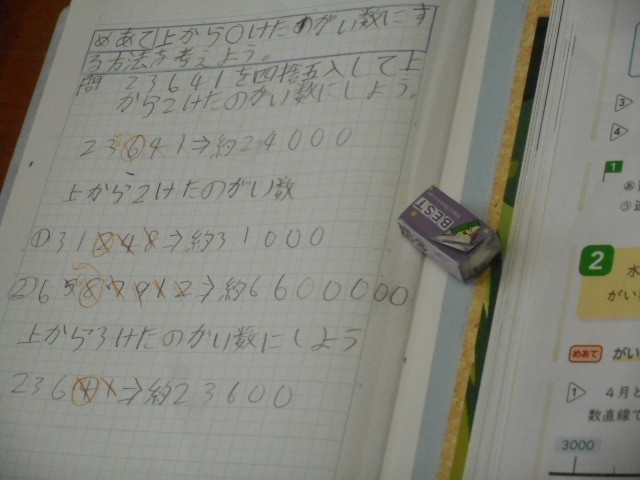 めあて上から〇けたのがい数にす
る方法を考えよう。
問 23641を四捨五入して上
から2けたのがい数にしよう。
23641⇒約24000
上から2けたのがい数
①31048⇒約31000
上から3けたのがい数にしよう
23641⇒約23600
BEST
3
4
1
2
水
がい
めあて がい
1 4月と
数直線で
3000